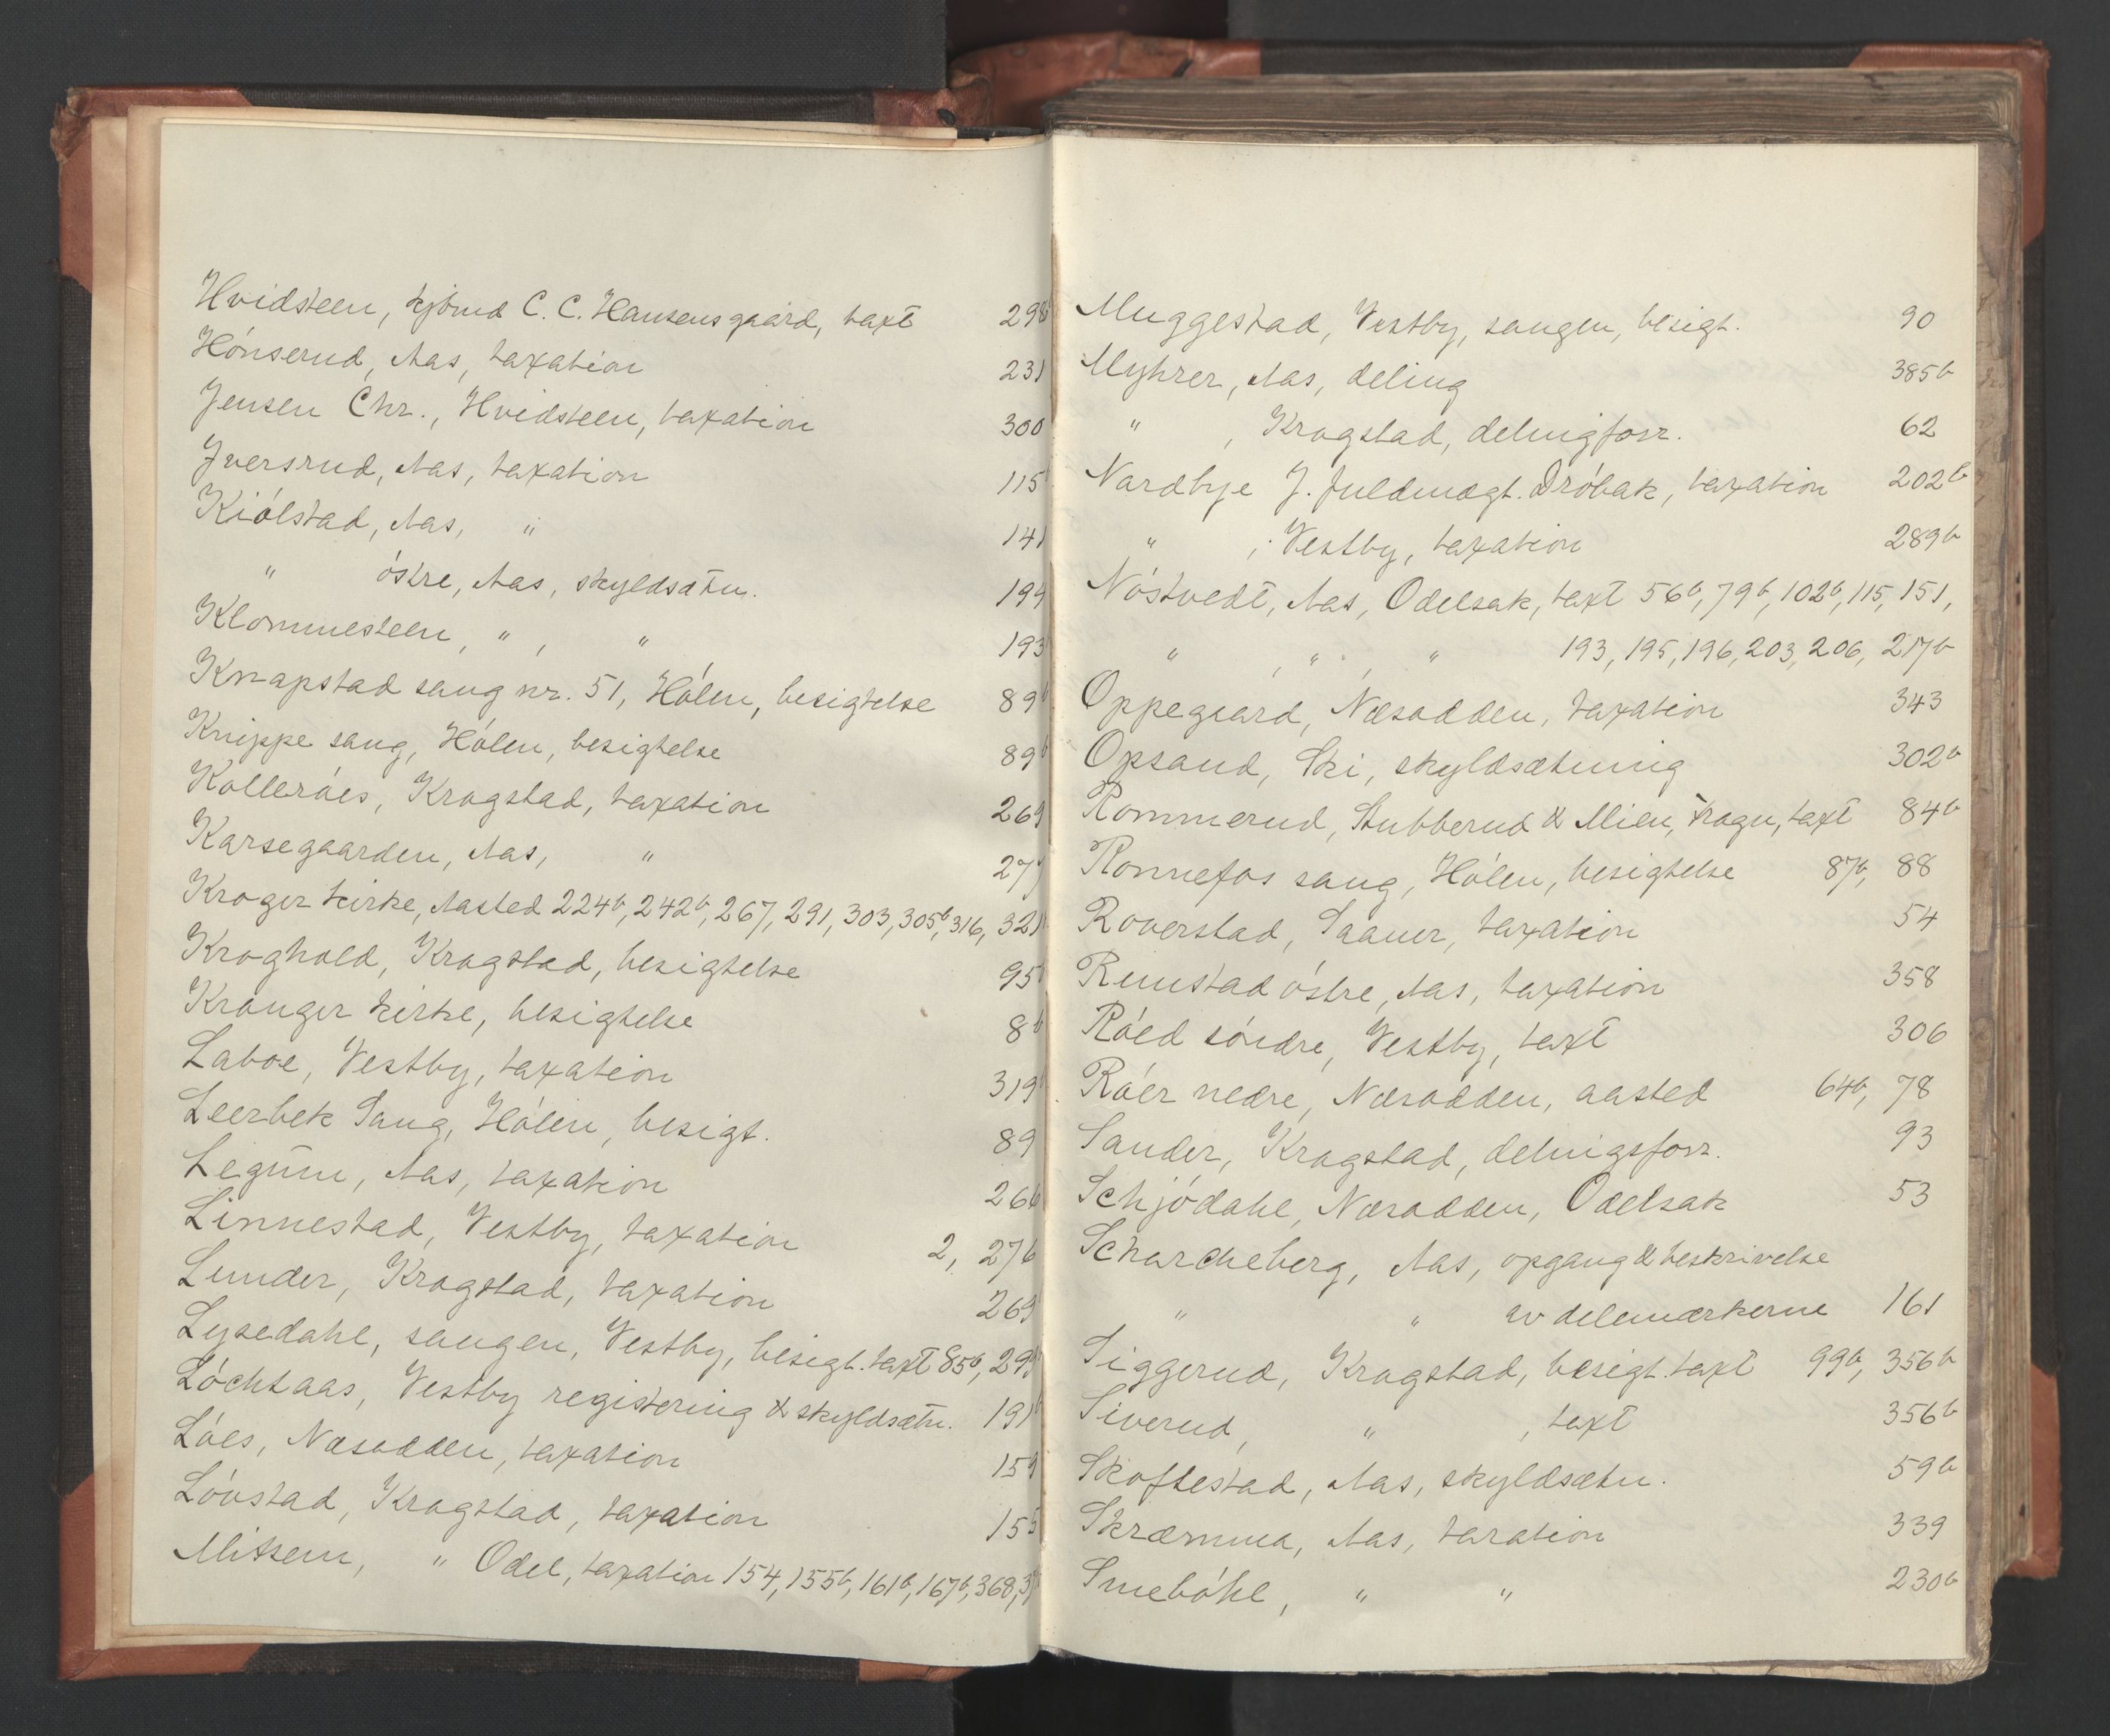 Hvidsteen, kjbmd C. C. Hansens gaard, taxt 298
Hónserud, Aas, taxation 231
Jensen Chr., Hvidsteen, taxation 300
Jversrud, Aas, taxation 115
Kiólstad, Aas, " 141
" óstre, Aas, skyldsætn. 194
Klommesteen, " , " 193
Knapstad saug nr. 51, Hólen, besigtelse 89
Knippe saug, Hólen, besigtelse 89
Kolleróes, Krogstad, taxation 269
Korsegaarden, Aas, " 277
Kroger kirke, Aasted 224b, 242b, 267, 291, 303, 305b, 316, 321
Kroghold, Krogstad, besigtelse 95
Kronger kirke, besigtelse 8b
Laboe, Vestby, taxation 319
Leerbek Saug, Hólen, besigt. 89
Legūm, Aas, taxation 266
Linnestad, Vestby, taxation 2, 276
Lunder, Krogstad, taxation 269
Lysedahl, saugen, Vestby, besigt. taxt 85b, 299
Lóchtaas, Vestby registering & skyldsætn. 191
Lóes, Næsodden, taxation 159
Lóvstad, Krogstad, taxation 155
Mitsem, " Odel, taxation 154, 155b, 161b, 167b, 368,
Muggestad, Vestby, saugen, besigt. 90
Myhrer, Aas, deling 385b
" , Krogstad, delingforr. 62
Nordbye J. fuldmægt. Dróbak, taxation 202b
" , Vestby, taxation 289b
Nóstvedt, Aas, Odelsak, taxt 56b, 79b, 102b, 115, 151,
" , " , " 193, 195, 196, 203, 206, 217b
Oppegaard, Næsodden, taxation 343
Opsand, Ski, skyldsætning 302b
Rommerud, Stubberud & Mien, Krogn, taxt 84b
Ronnefos saug, Hólen, besigtelse 87b, 88
Roverstad, Saaner, taxation 54
Rustad óstre, Aas, taxation 358
Róed sóndre, Vestby, taxt 306
Róer nedre, Næsodden, aasted 64b, 78
Sander, Krogstad, delingsforr. 93
Schjódahl, Næsodden, Odelsak 53
Schorcheberg, Aas, opgang & beskrivelse
" " av delemærkerne 161
Siggerud, Krogstad, besigt. taxt 99b, 356b
Siverud, " , taxt 356b
Skoftestad, Aas, skyldsætn. 59b
Skræmma, Aas, taxation 339
Smebóhl, " " 230b